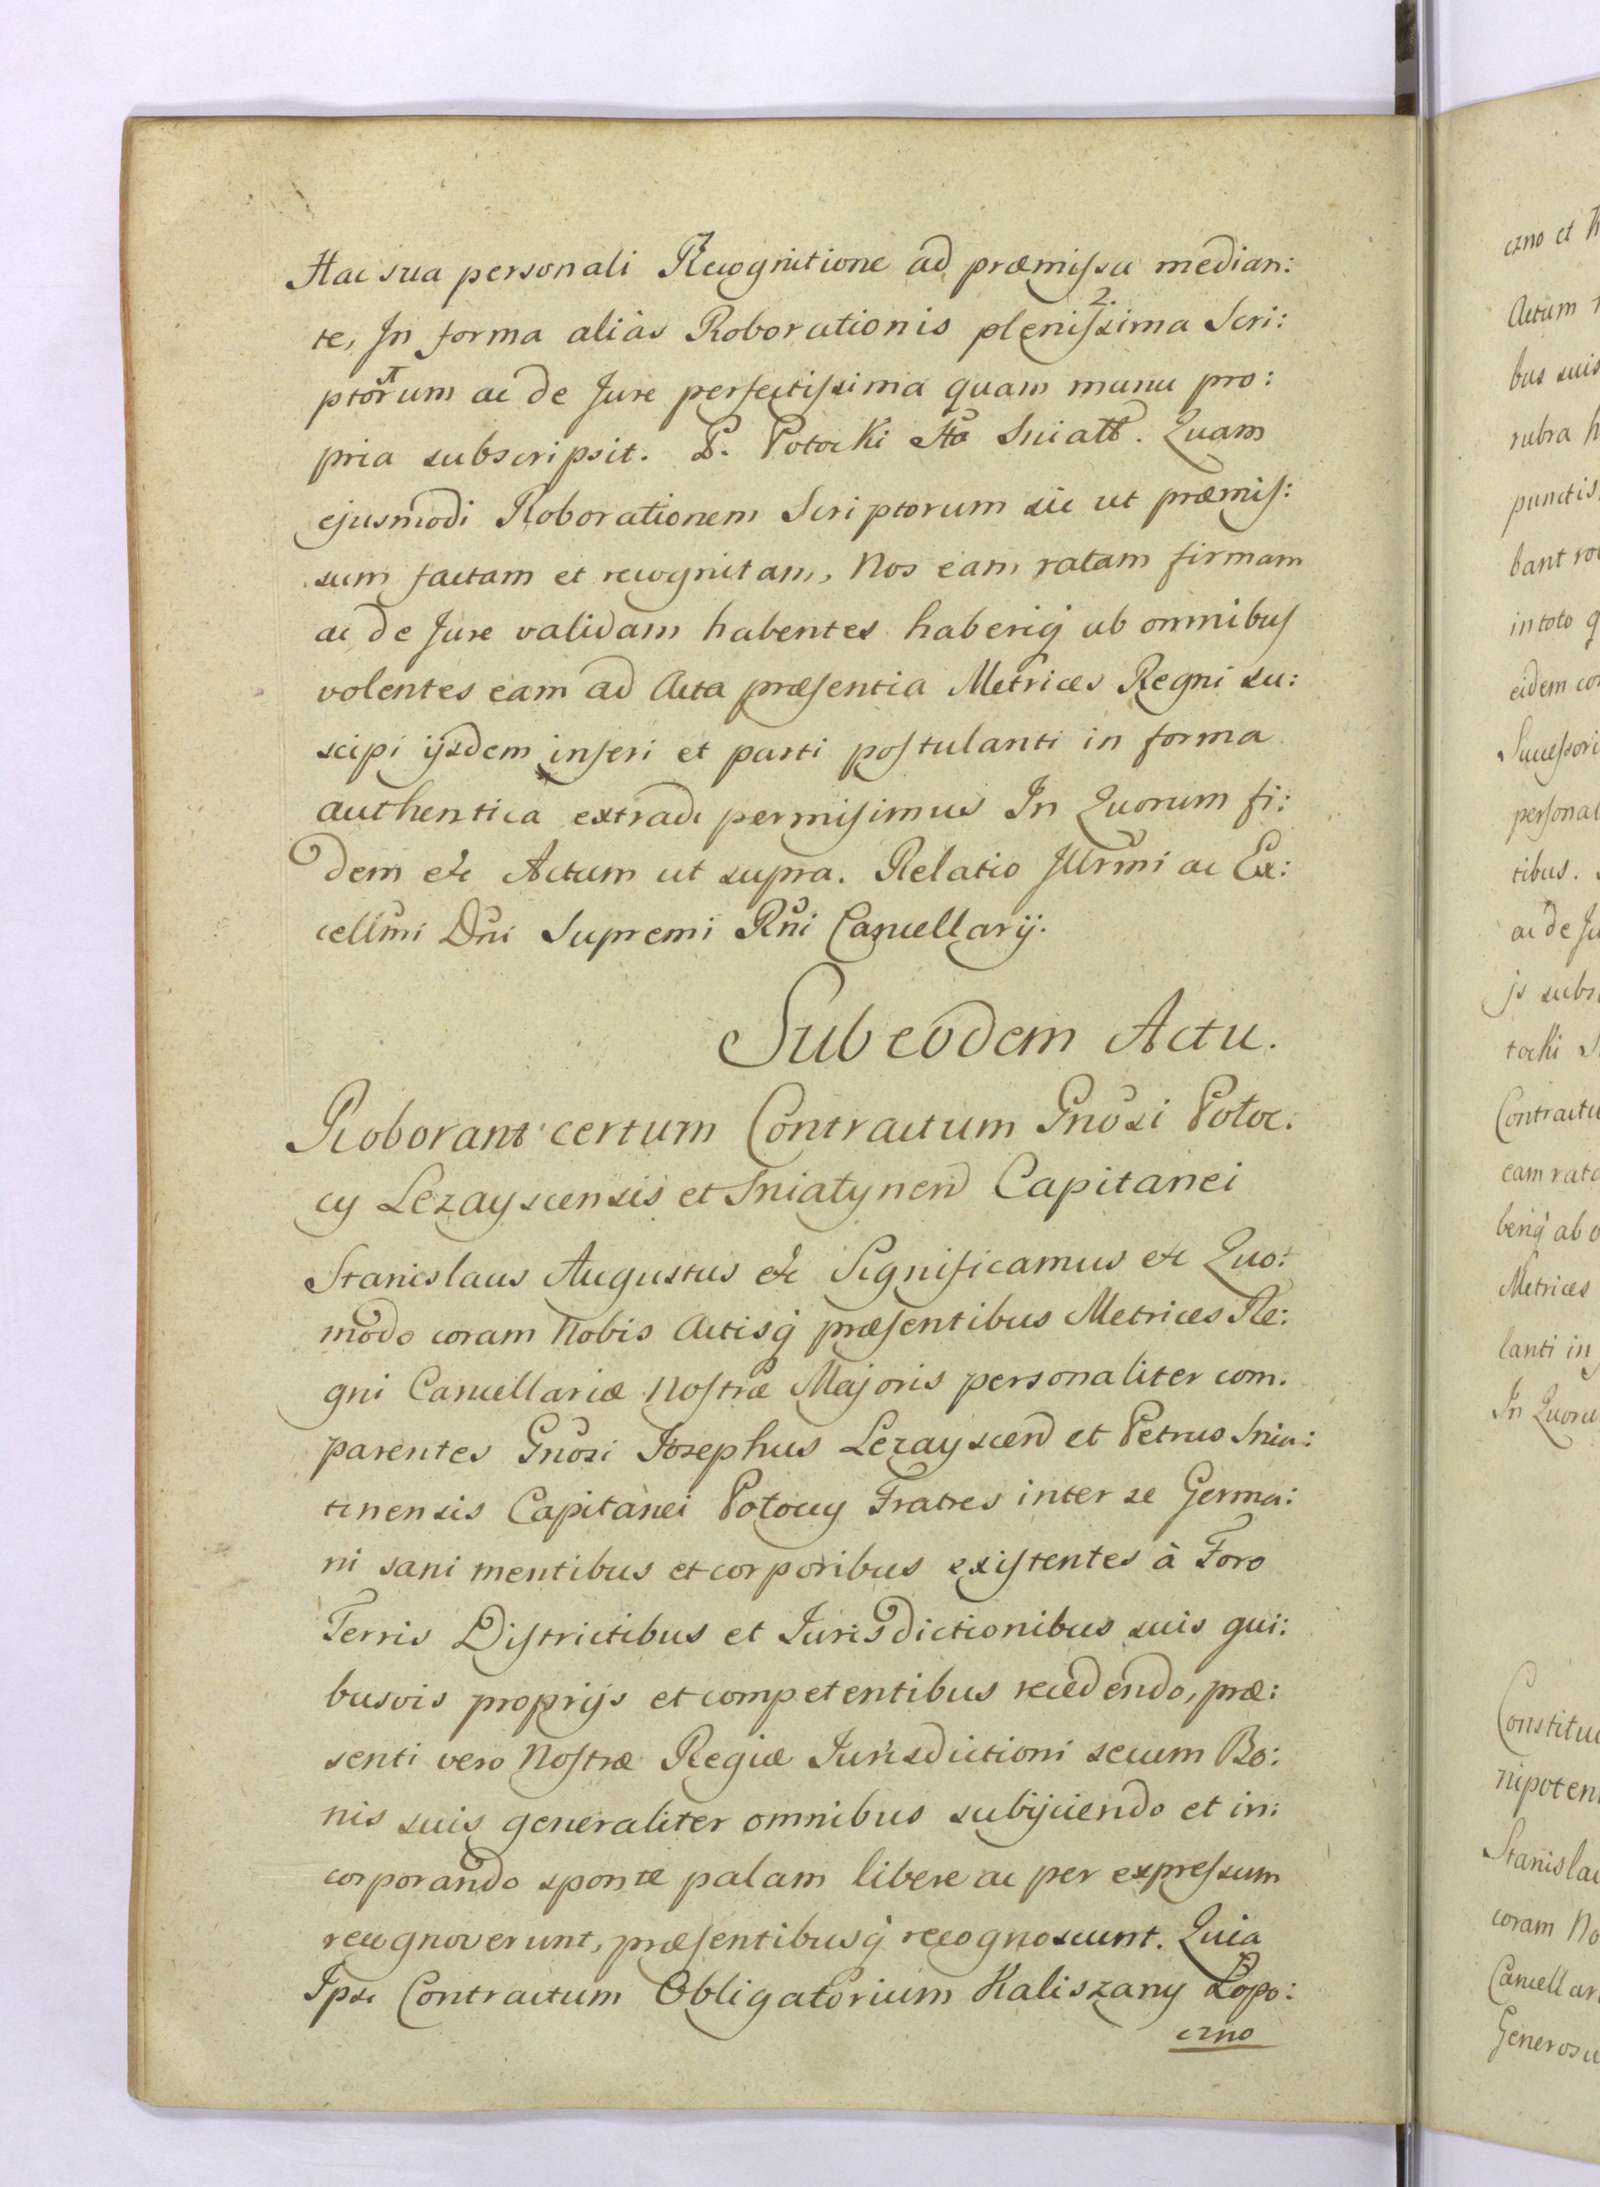 Hac sua personali Recognitione ad præmissa median:
te, In forma aliàs Roborationis plenissima Scri:
ptorum ac de Jure perfectissima quam manu pro:
pria subscripsit. P. Potocki Sta Sniatt. Quam
ejusmodi Roborationem Scriptorum sic ut præmis:
sum factam et recognitam, Nos eam ratam firmam
ac de Jure validam habentes haberiq ab omnibus
volentes eam ad Acta præsentia Metrices Regni su:
scipi ijsdem inseri et parti postulanti in forma
authentica extradi permisimus In Quorum fi:
dem etc Actum ut supra. Relatio Illrmi ac Ex:
cellmi Dni Supremi Rni Cancellarij.
Sub eodem Actu.
Roborant certum Contractum Gnosi Potoc:
cy Lezayscensis et Sniatynen Capitanei
Stanislaus Augustus etc Significamus etc Quo:
modo coram Nobis Actisq præsentibus Metrices Re:
gni Cancellariæ Nostræ Majoris personaliter com:
parentes Gnosi Josephus Lezayscen et Petrus Snia:
tinensis Capitanei Potoccy Fratres inter se Germa:
ni sani mentibus et corporibus existentes à Foro
Terris Districtibus et Jurisdictionibus suis qui:
busvis proprijs et competentibus recedendo, præ:
senti vero Nostræ Regiæ Jurisdictioni secum Bo:
nis suis generaliter omnibus subijciendo et in:
corporando sponte palam libere ac per expressum
recognoverunt, præsentibusq recognoscunt. Quia
Ipsi Contractum Obligatorium Kaliszany Łopo:
czno
czno et
Actum
bus suis
rubra
punctis
bant
in toto
eidem
Successori
personal
tibus.
ac de Ju
js subs
tocki
Contractu
eam rata
beriq ab
Metrices
lanti in
In Quoru
Constitu
nipoten
Stanisla
coram No
Cancellar
Generosu